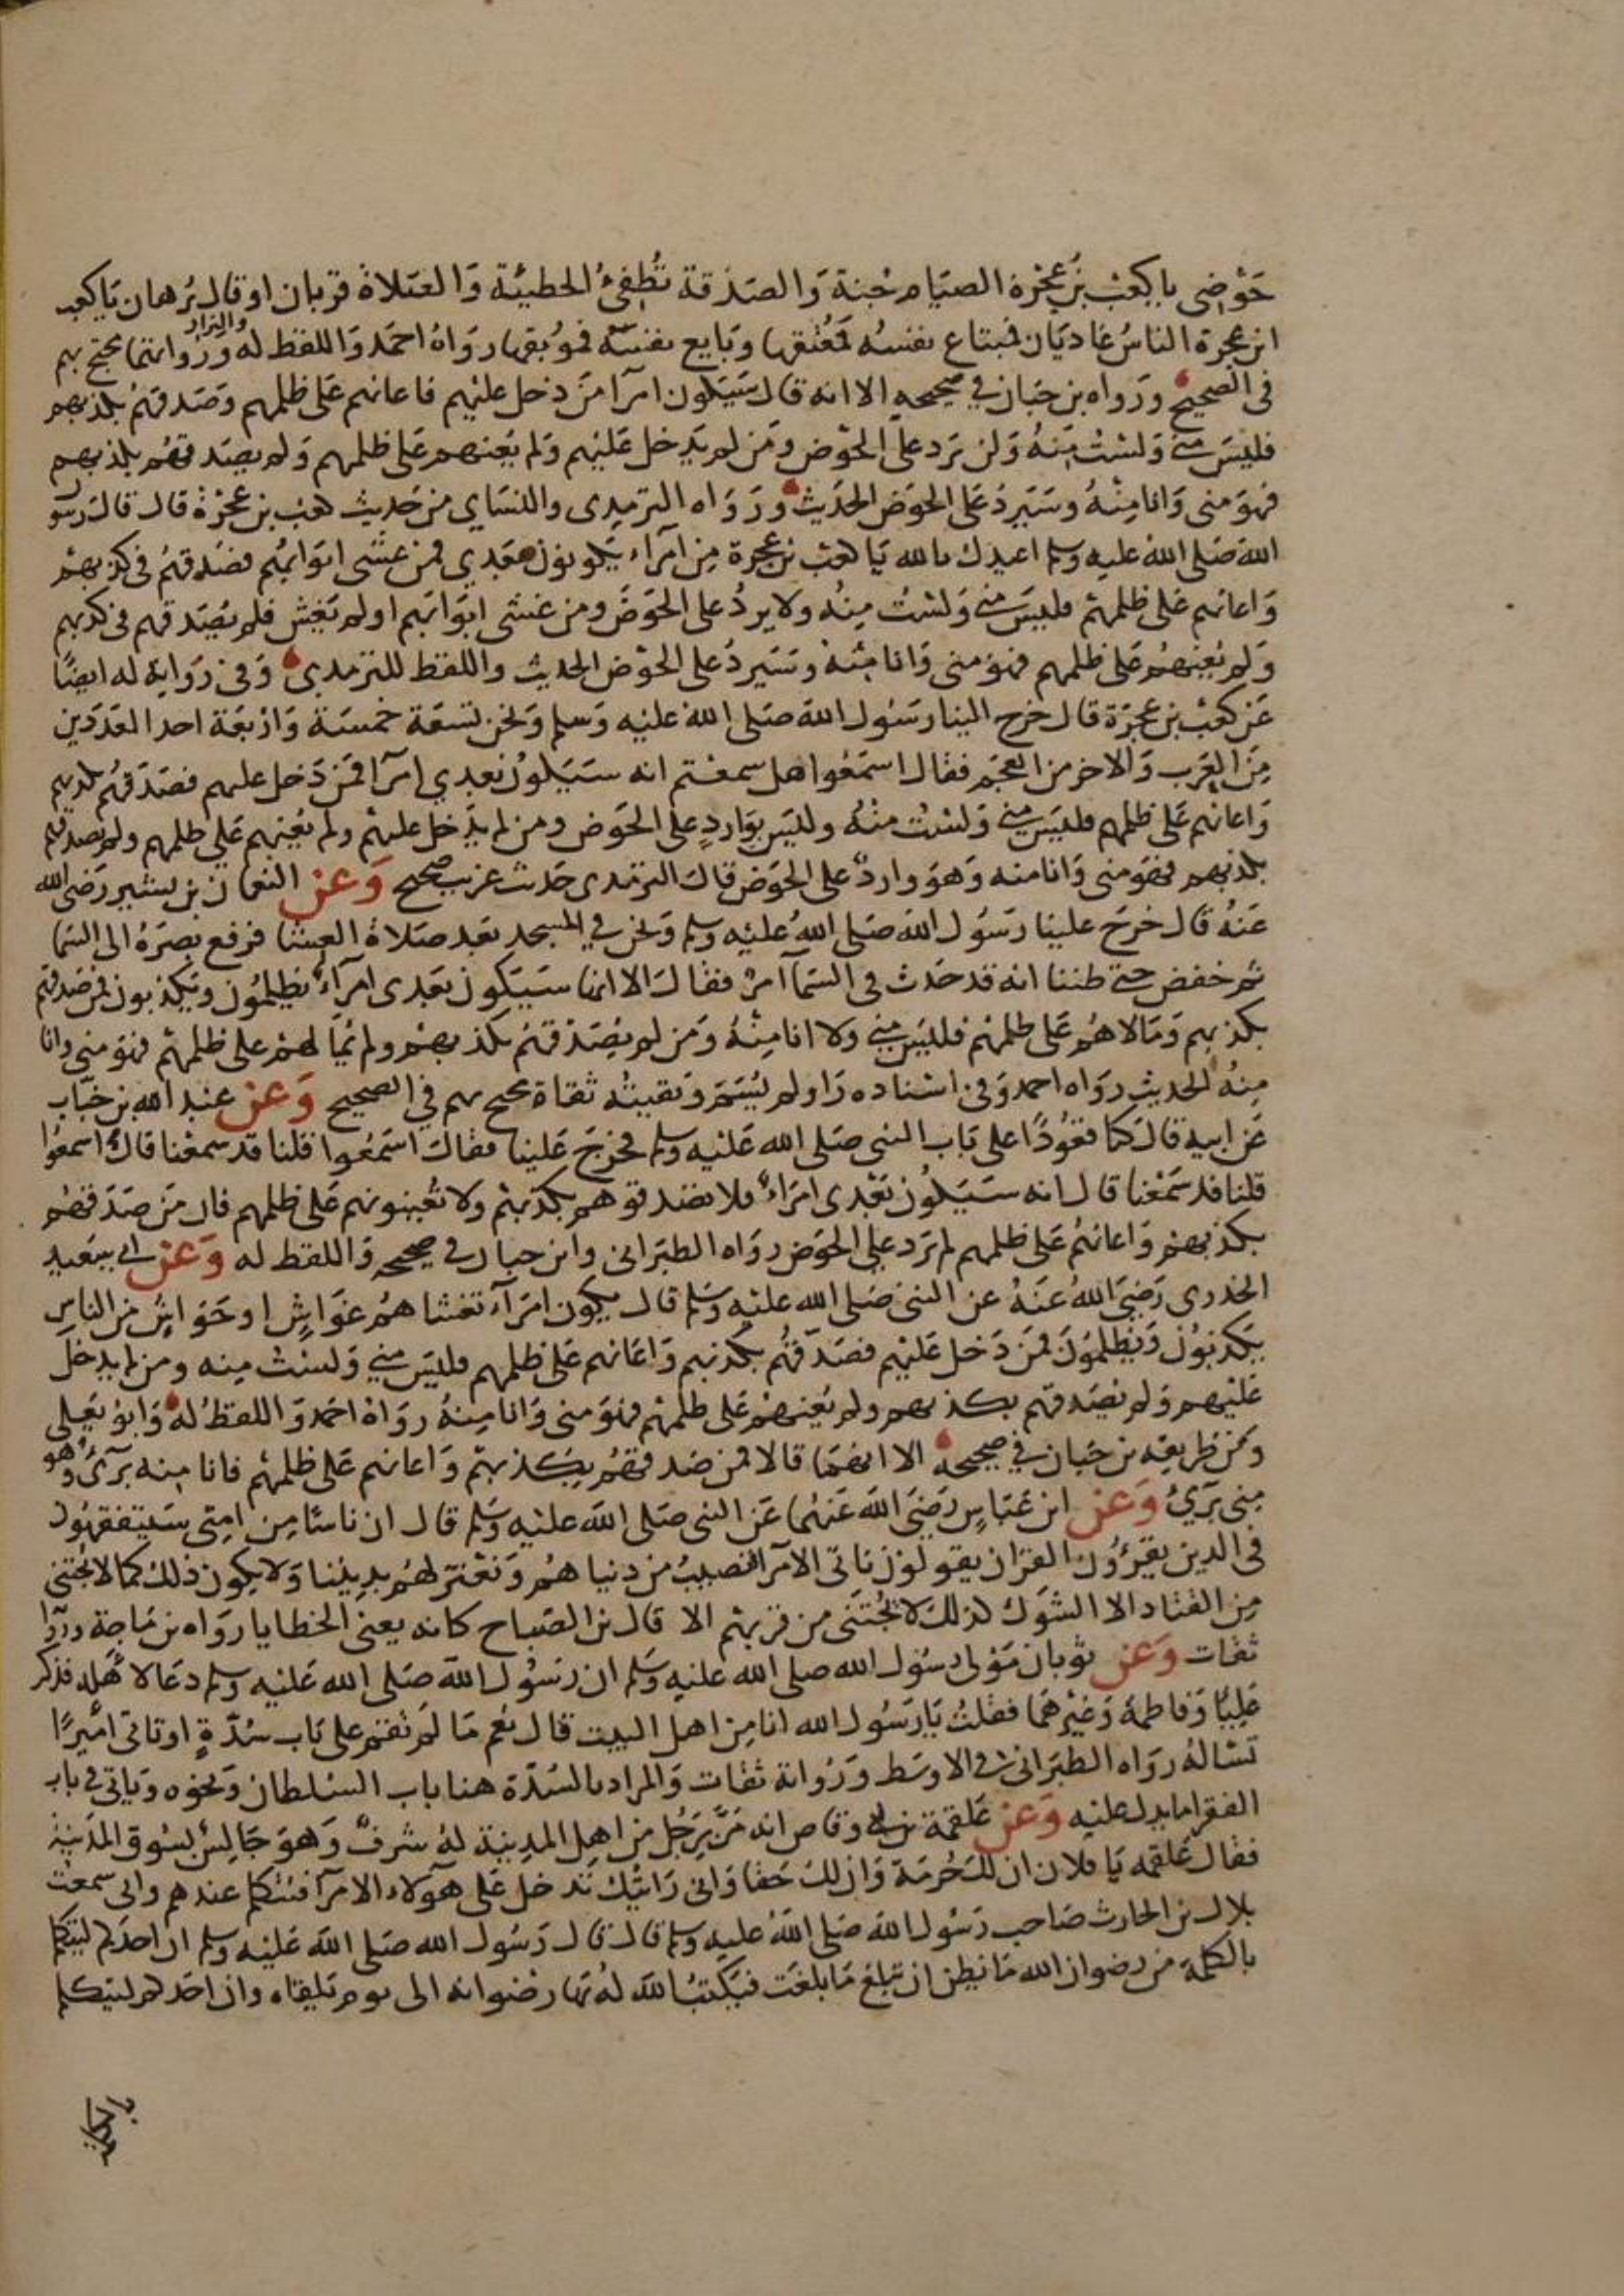 حوضي يا كعب بن عجرة الصيام جنة والصدقة تطفئ الخطيئة والصلاة قربان او قال برهان يا كعب
ابن عجرة الناس غاديان فمبتاع نفسه فمعتقها وبايع نفسه فموبقها رواه احمد واللفظ له والبزار ورواتهما محتج بهم
في الصحيح ورواه بن حبان في صحيحه الا انه قال ستكون امرآ من دخل عليهم فاعانهم على ظلمهم وصدقهم بكذبهم
فليس مني ولست منه ولن يرد على الحوض ومن لم يدخل عليهم ولم يعنهم على ظلمهم ولم يصدقهم بكذبهم
فهو مني وانا منه وسيرد على الحوض الحديث ورواه الترمذي والنساي من حديث كعب بن عجرة قال قال رسول
الله صلى الله عليه وسلم اعيذك بالله يا كعب بن عجرة من امرآء يكونون بعدي فمن غشى ابوابهم فصدقهم في كذبهم
واعانهم على ظلمهم فليس مني ولست منه ولا يرد على الحوض ومن غشى ابوابهم او لم يغش فلم يصدقهم في كذبهم
ولم يعنهم على ظلمهم فهو مني وانا منه وسيرد على الحوض الحديث واللفظ للترمذي وفي رواية له ايضا
عن كعب بن عجرة قال خرج الينا رسول الله صلى الله عليه وسلم ونحن تسعة خمسة واربعة احد العددين
من العرب والاخر من العجم فقال اسمعوا هل سمعتم انه سيكون بعدي امرآ فمن دخل عليهم فصدقهم بكذبهم
واعانهم على ظلمهم فليس مني ولست منه وليس بوارد على الحوض ومن لم يدخل عليهم ولم يعنهم على ظلمهم ولم يصدقهم
بكذبهم فهو مني وانا منه وهو وارد على الحوض قال الترمذي حديث غريب صحيح وعن النعمان بن بشير رضي الله
عنه قال خرج علينا رسول الله صلى الله عليه وسلم ونحن في المسجد بعد صلاة العشا فرفع بصره الى السما
ثم خفض حتى ظننا انه قد حدث في السمآ امر فقال الا انها ستكون بعدي امرآء يظلمون ويكذبون فمن صدقهم
بكذبهم ومالاهم على ظلمهم فليس مني ولا انا منه ومن لم يصدقهم بكذبهم ولم يمالهم على ظلمهم فهو مني وانا
منه الحديث رواه احمد وفي اسناده راو لم يسم وبقيته ثقاة محتج بهم في الصحيح وعن عبد الله بن خباب
عن ابيه قال كنا قعودا على باب النبي صلى الله عليه وسلم فخرج علينا فقال اسمعوا قلنا قد سمعنا قال اسمعوا
قلنا قد سمعنا قال انه سيكون بعدي امراء فلا تصدقوهم بكذبهم ولا تعينونهم على ظلمهم فان من صدقهم
بكذبهم واعانهم على ظلمهم لم يرد على الحوض رواه الطبراني وابن حبان في صحيحه واللفظ له وعن ابي سعيد
الخدري رضي الله عنه عن النبي صلى الله عليه وسلم قال يكون امرآء تغشاهم غواش او حواش من الناس
يكذبون ويظلمون فمن دخل عليهم فصدقهم بكذبهم واعانهم على ظلمهم فليس مني ولست منه ومن لم يدخل
عليهم ولم يصدقهم بكذبهم ولم يعنهم على ظلمهم فهو مني وانا منه رواه احمد واللفظ له وابو يعلى
ومن طريقه بن حبان في صحيحه الا انهما قالا فمن صدقهم بكذبهم واعانهم على ظلمهم فانا منه برئ وهو
مني برئ وعن ابن عباس رضي الله عنهما عن النبي صلى الله عليه وسلم قال ان ناسا من امتي سيتفقهون
في الدين يقرؤن القران يقولون ناتي الامرآ فنصيب من دنياهم ونعتزلهم بديننا ولا يكون ذلك كما لا يجتنى
من القتاد الا الشوك كذلك لا يجتنى من قربهم الا قال بن الصباح كانه يعني الخطايا رواه بن ماجة ورواته
ثقات وعن ثوبان مولى رسول الله صلى الله عليه وسلم ان رسول الله صلى الله عليه وسلم دعا لاهله فذكر
عليا وفاطمة وغيرهما فقلت يا رسول الله انا من اهل البيت قال نعم ما لم تقم على باب سدة او تاتي اميرا
تساله رواه الطبراني في الاوسط ورواته ثقات والمراد بالسدة هنا باب السلطان ونحوه وياتي في باب
الفقر ما يدل عليه وعن علقمة بن ابي وقاص انه مر برجل من اهل المدينة له شرف وهو جالس بسوق المدينة
فقال علقمه يا فلان ان لك حرمة وان لك حقا واني رايتك تدخل على هولاء الامرآ فتتكلم عندهم واني سمعت
بلال بن الحارث صاحب رسول الله صلى الله عليه وسلم قال قال رسول الله صلى الله عليه وسلم ان احدكم ليتكلم
بالكلمة من رضوان الله ما يظن ان تبلغ ما بلغت فيكتب الله له بها رضوانه الى يوم يلقاه وان احدكم ليتكلم